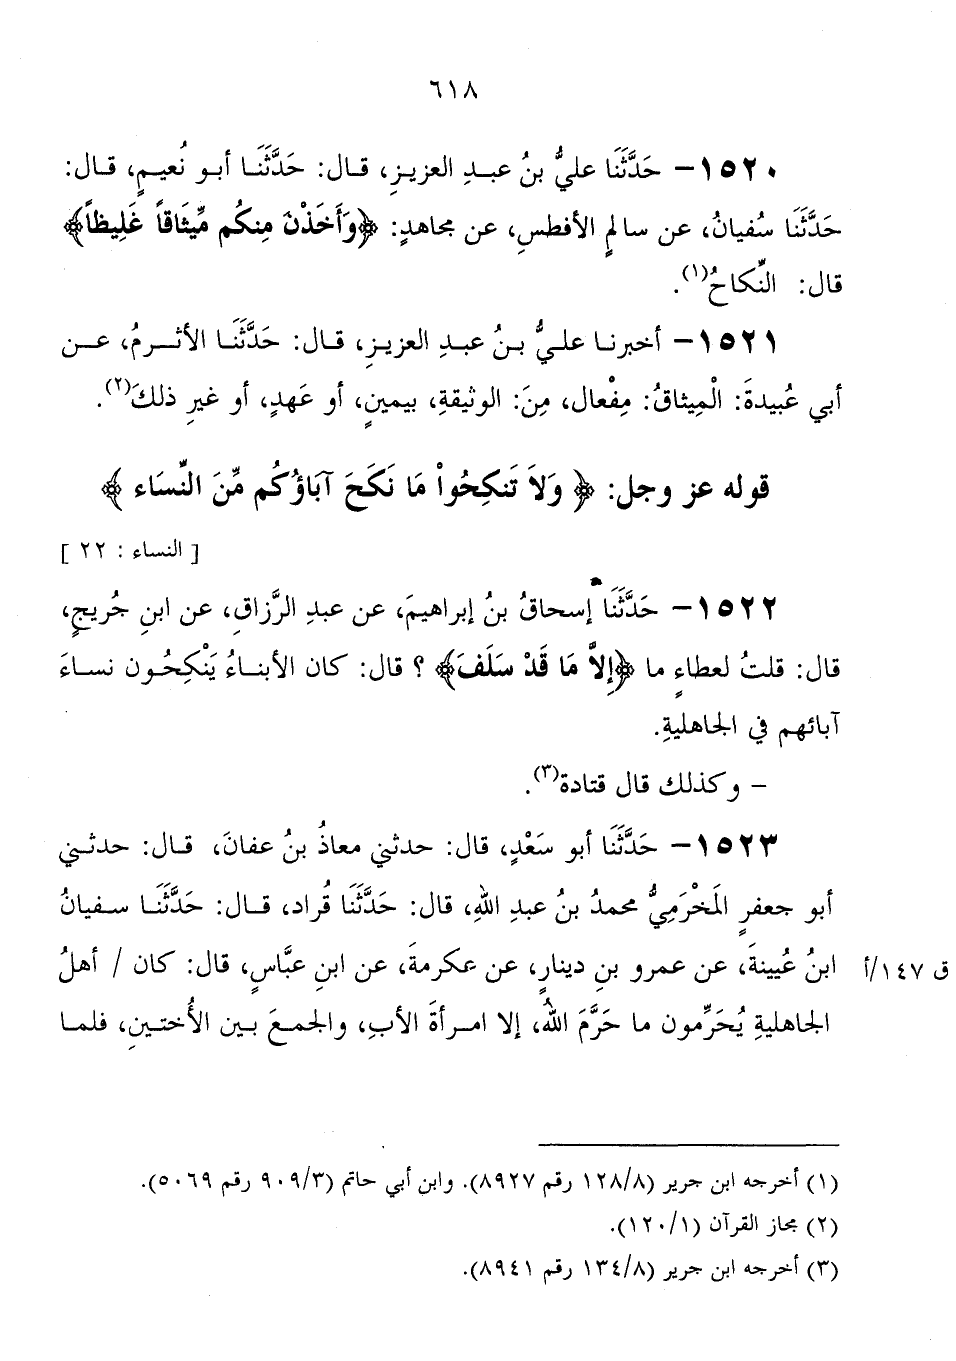 ٦١٨
١٥٢٠- حَدَّثَنَا عليُّ بنُ عبدِ العزيزِ، قال: حَدَّثَنَا أبو نُعيمٍ، قال:
حَدَّثَنَا سُفيانُ، عن سالمٍ الأفطسِ، عن مجاهدٍ: ﴿وَأَخَذْنَ مِنكُم مِّيثَاقاً غَلِيظاً﴾
قال: النِّكاحُ(١).
١٥٢١- أخبرنا عليُّ بنُ عبدِ العزيزِ، قال: حَدَّثَنَا الأثرمُ، عن
أبي عُبيدةَ: الْمِيثاقُ: مِفْعال، مِنَ: الوثيقةِ، بيمينٍ، أو عَهدٍ، أو غيرِ ذلكَ(٢).
قوله عز وجل: ﴿ وَلاَ تَنكِحُواْ مَا نَكَحَ آبَاؤُكُم مِّنَ النِّسَاء ﴾
[ النساء : ٢٢ ]
١٥٢٢- حَدَّثَنَا إسحاقُ بنُ إبراهيمَ، عن عبدِ الرَّزاقِ، عن ابنِ جُريجٍ،
قال: قلتُ لعطاءٍ ما ﴿إِلاَّ مَا قَدْ سَلَفَ﴾ ؟ قال: كان الأبناءُ يَنْكِحُون نساءَ
آبائهم في الجاهليةِ.
- وكذلك قال قتادة(٣).
١٥٢٣- حَدَّثَنَا أبو سَعْدٍ، قال: حدثني معاذُ بنُ عفانَ، قال: حدثني
أبو جعفرٍ المَخْرَمِيُّ محمدُ بنُ عبدِ اللهِ، قال: حَدَّثَنَا قُراد، قال: حَدَّثَنَا سفيانُ
ابنُ عُيينةَ، عن عمرو بنِ دينارٍ، عن عكرمةَ، عن ابنِ عبَّاسٍ، قال: كان / أهلُ ق ١٤٧/أ
الجاهليةِ يُحَرِّمون ما حَرَّمَ اللهُ، إلا امرأةَ الأبِ، والجمعَ بين الأُختينِ، فلما
(١) أخرجه ابن جرير (١٢٨/٨ رقم ٨٩٢٧). وابن أبي حاتم (٩٠٩/٣ رقم ٥٠٦٩).
(٢) مجاز القرآن (١٢٠/١).
(٣) أخرجه ابن جرير (١٣٤/٨ رقم ٨٩٤١).